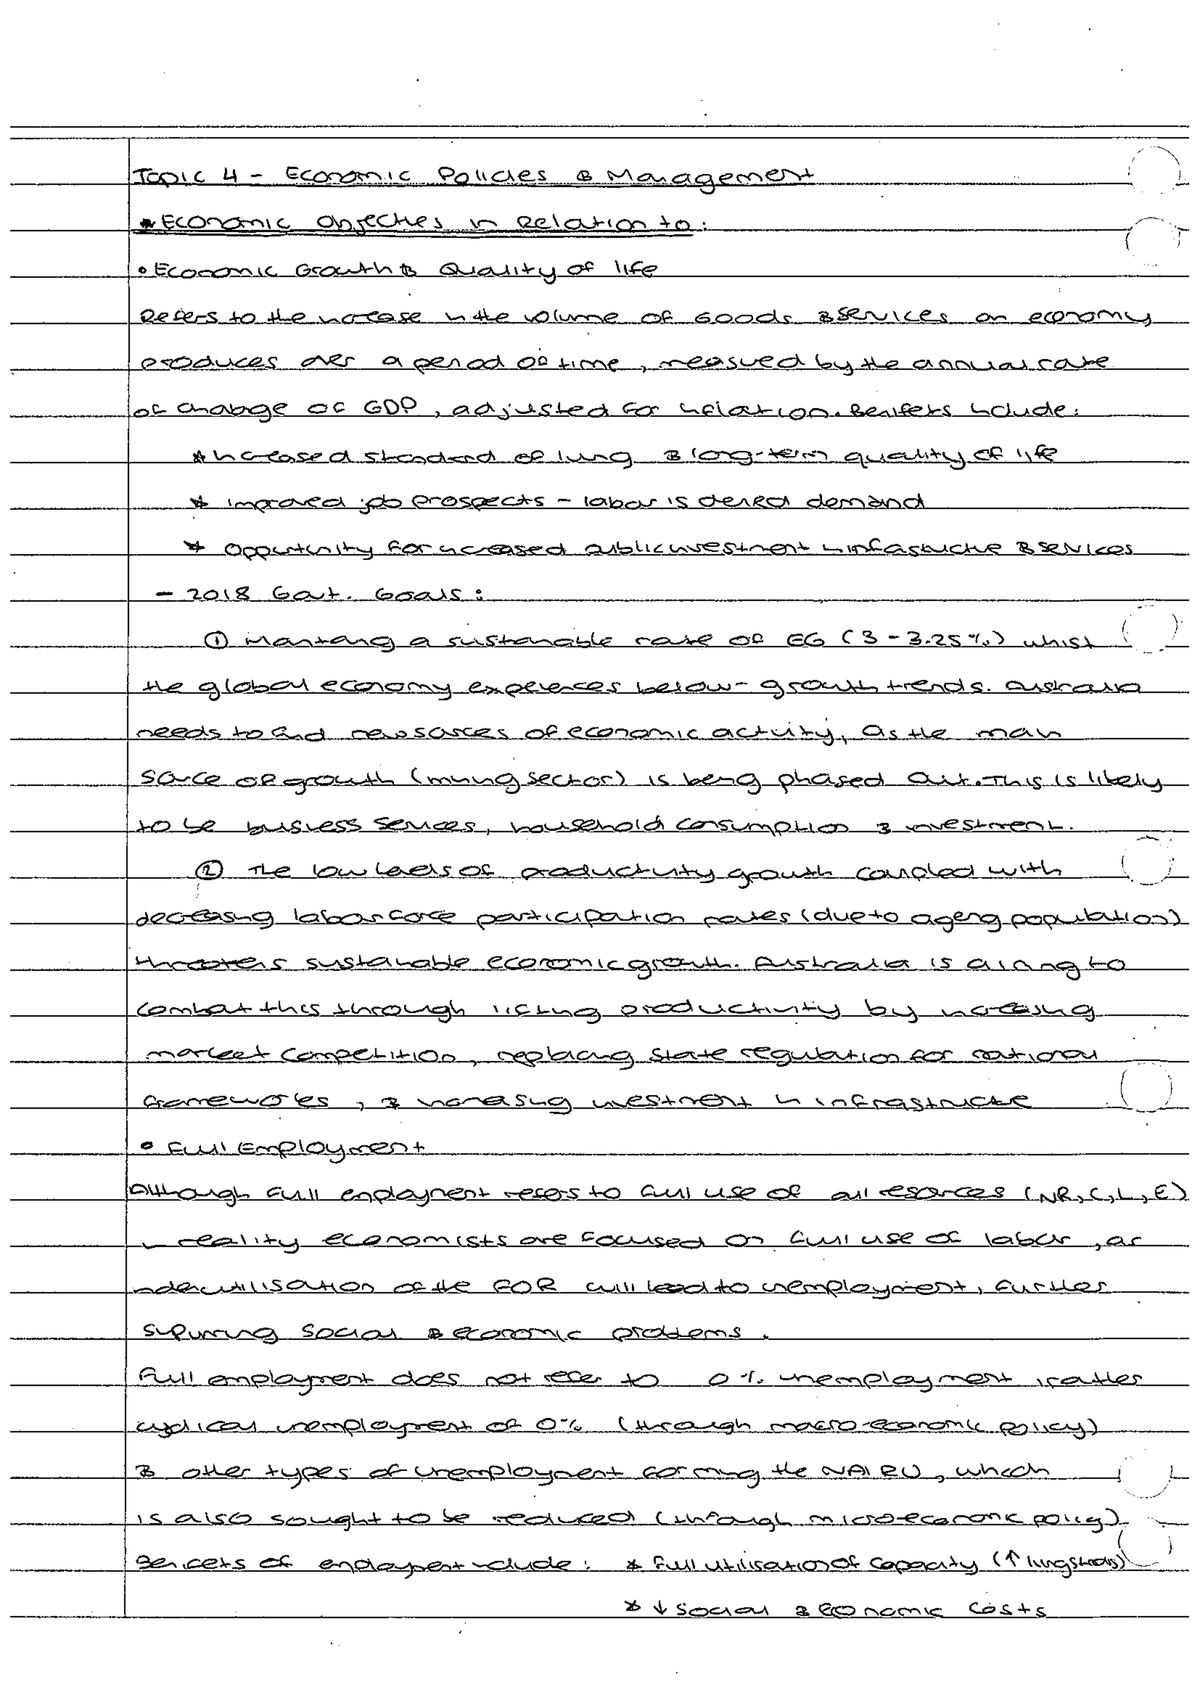 Topic 4 - Economic Policies & Management
* Economic Objectives in Relation to:
• Economic Growth & Quality of life
Refers to the increase in the volume of Goods & Services an economy
produces over a period of time, measured by the annual rate
of change of GDP, adjusted for inflation. Benifets include:
* Increased standard of living & long-term quality of life
* improved job prospects - labour is derived demand
* Opportunity for increased public investment in infastructure & services
- 2018 Govt. Goals:
① Maintaing a sustainable rate of EG (3 - 3.25%) whist
the global economy experiences below-growth trends. Australia
needs to find new sources of economic activity, as the main
source of growth (mining sector) is being phased out. This is likely
to be business services, household consumption & investment.
② The low levels of productivity growth coupled with
decreasing labour force participation rates (due to ageing population)
threatens sustainable economic growth. Australia is aiming to
combat this through lifting productivity by increasing
market competition, replacing state regulation for national
frameworks, & increasing investment in infrastructure
• Full Employment
Although full employment refers to full use of all resources (NR, C, L, E)
in reality economists are focused on full use of labour, as
underutilisation of the FOR will lead to unemployment, further
spurring social & economic problems.
Full employment does not refer to 0% unemployment, rather
cyclical unemployment of 0% (through macro-economic policy)
& other types of unemployment forming the NAIRU, which
is also sought to be reduced (through micro-economic policy)
Benicets of employment include: * Full utilisation of capacity (↑ living stnds)
* ↓ social & economic costs